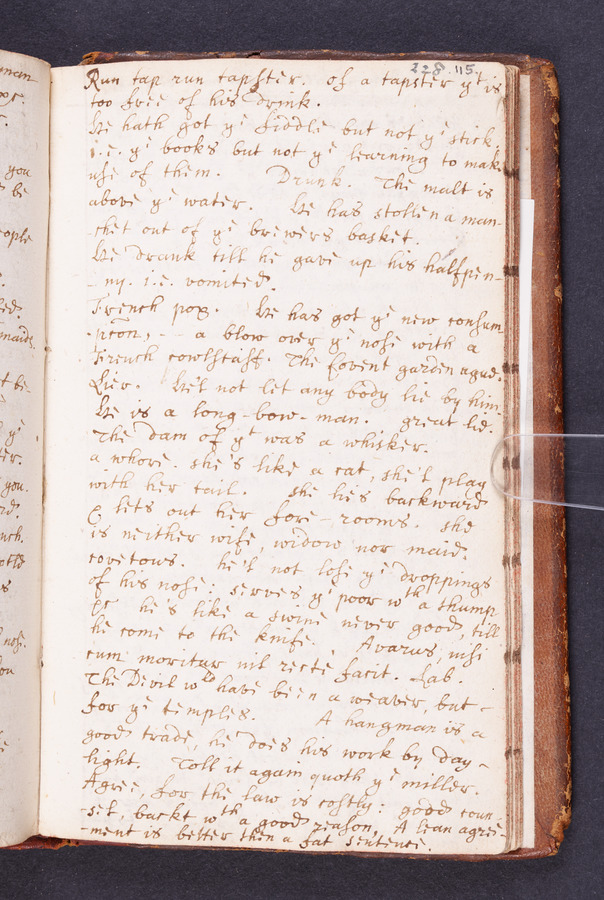 228. 115.
Run tap run tapster. of a tapster yt is
too free of his drink.
He hath got ye fiddle but not ye stick
i.e. ye books but not ye learning to make
use of them. Drunk. The malt is
above ye water. He has stollen a man-
chet out of ye brewers basket.
He drank till he gave up his halfpen-
-ny. i.e. vomited.
French pox. He has got ye new consum
-ption, -- a blow over ye nose with a
French cowlstaff. The Covent garden ague.
Lier. He'l not let any body lie by him.
He is a long-bow-man. great lie.
The dam of yt was a whisker.
a whore. she's like a cat, she'l play
with her tail. She lies backward
& lets out her fore-rooms. she
is neither wife, widow nor maid.
covetows. he'l not lose ye droppings
of his nose: serves ye poor wth a thump
&c he's like a swine never good till
he come to the knife. Avarus, nisi
cum moritur nil recte facit. Lab.
The Devil wd have been a weaver, but
for ye temples. A hangman is a
good trade, he does his work by day-
light. Toll it again quoth ye miller.
Agree, for the law is costly: good coun
-sel, backt wth a good reason, A lean agree
-ment is better then a fat sentence.
man
&c.
you
be
eople
maids
ye
you.
nose.